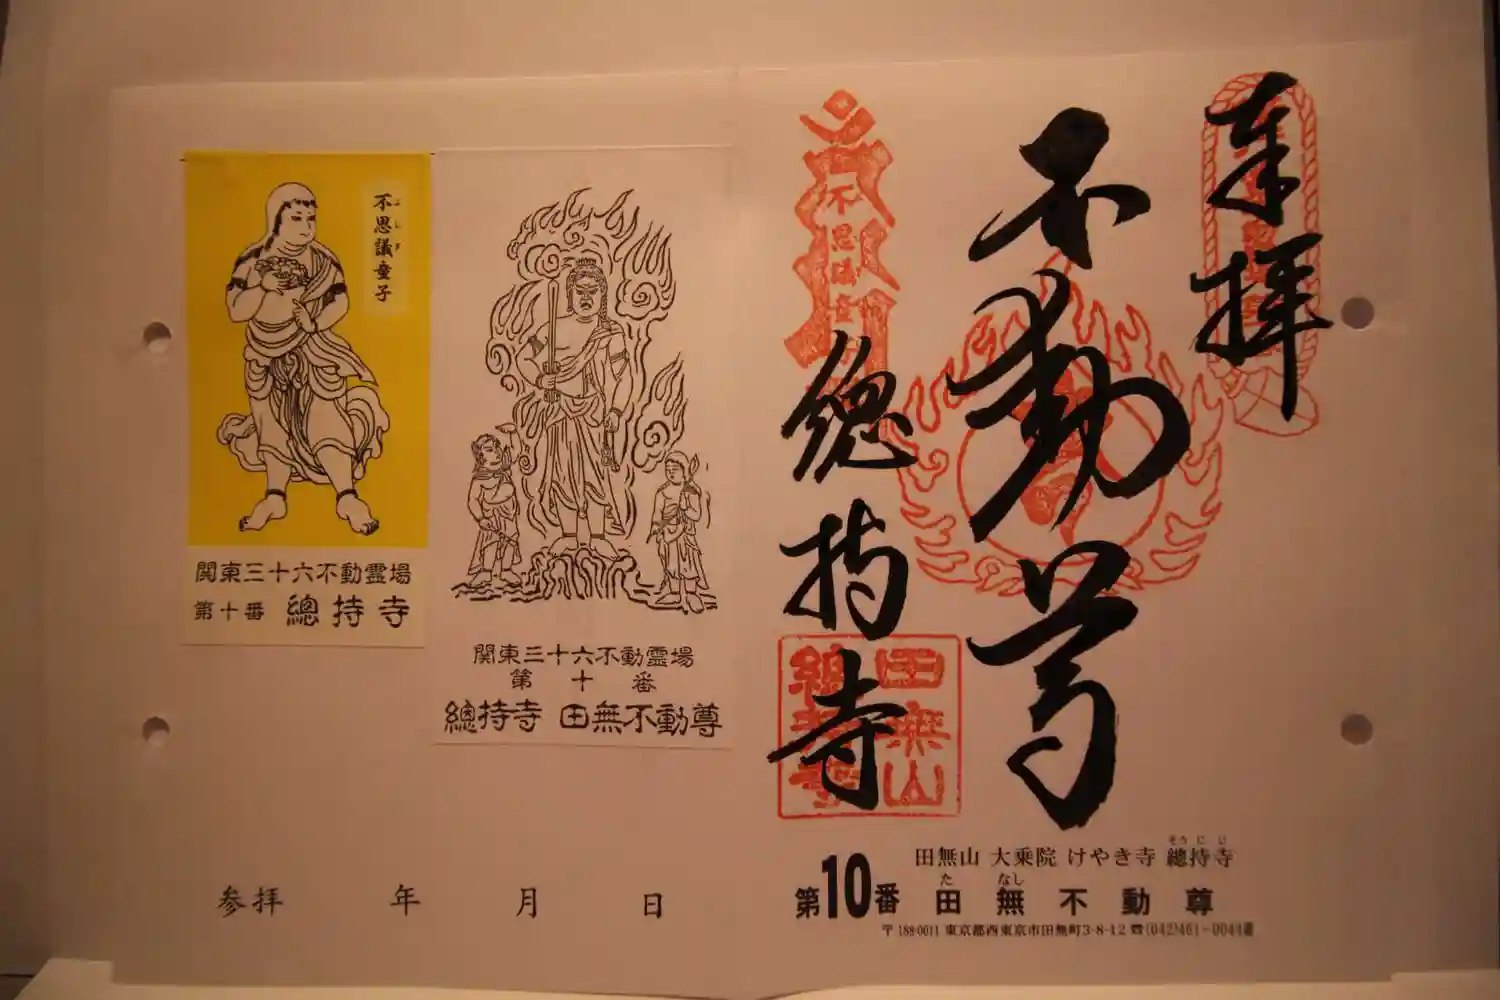 奉拝
不動尊
總持寺
不思議童
田無山
總持寺
そうじじ
田無山 大乗院 けやき寺 總持寺
た なし
第10番 田無不動尊
〒188-0011 東京都西東京市田無町3-8-12 ☎(042)461-0044
不思議童子
ふしぎ
関東三十六不動霊場
第十番 總持寺
関東三十六不動霊場
第十番
總持寺 田無不動尊
参拝 年 月 日